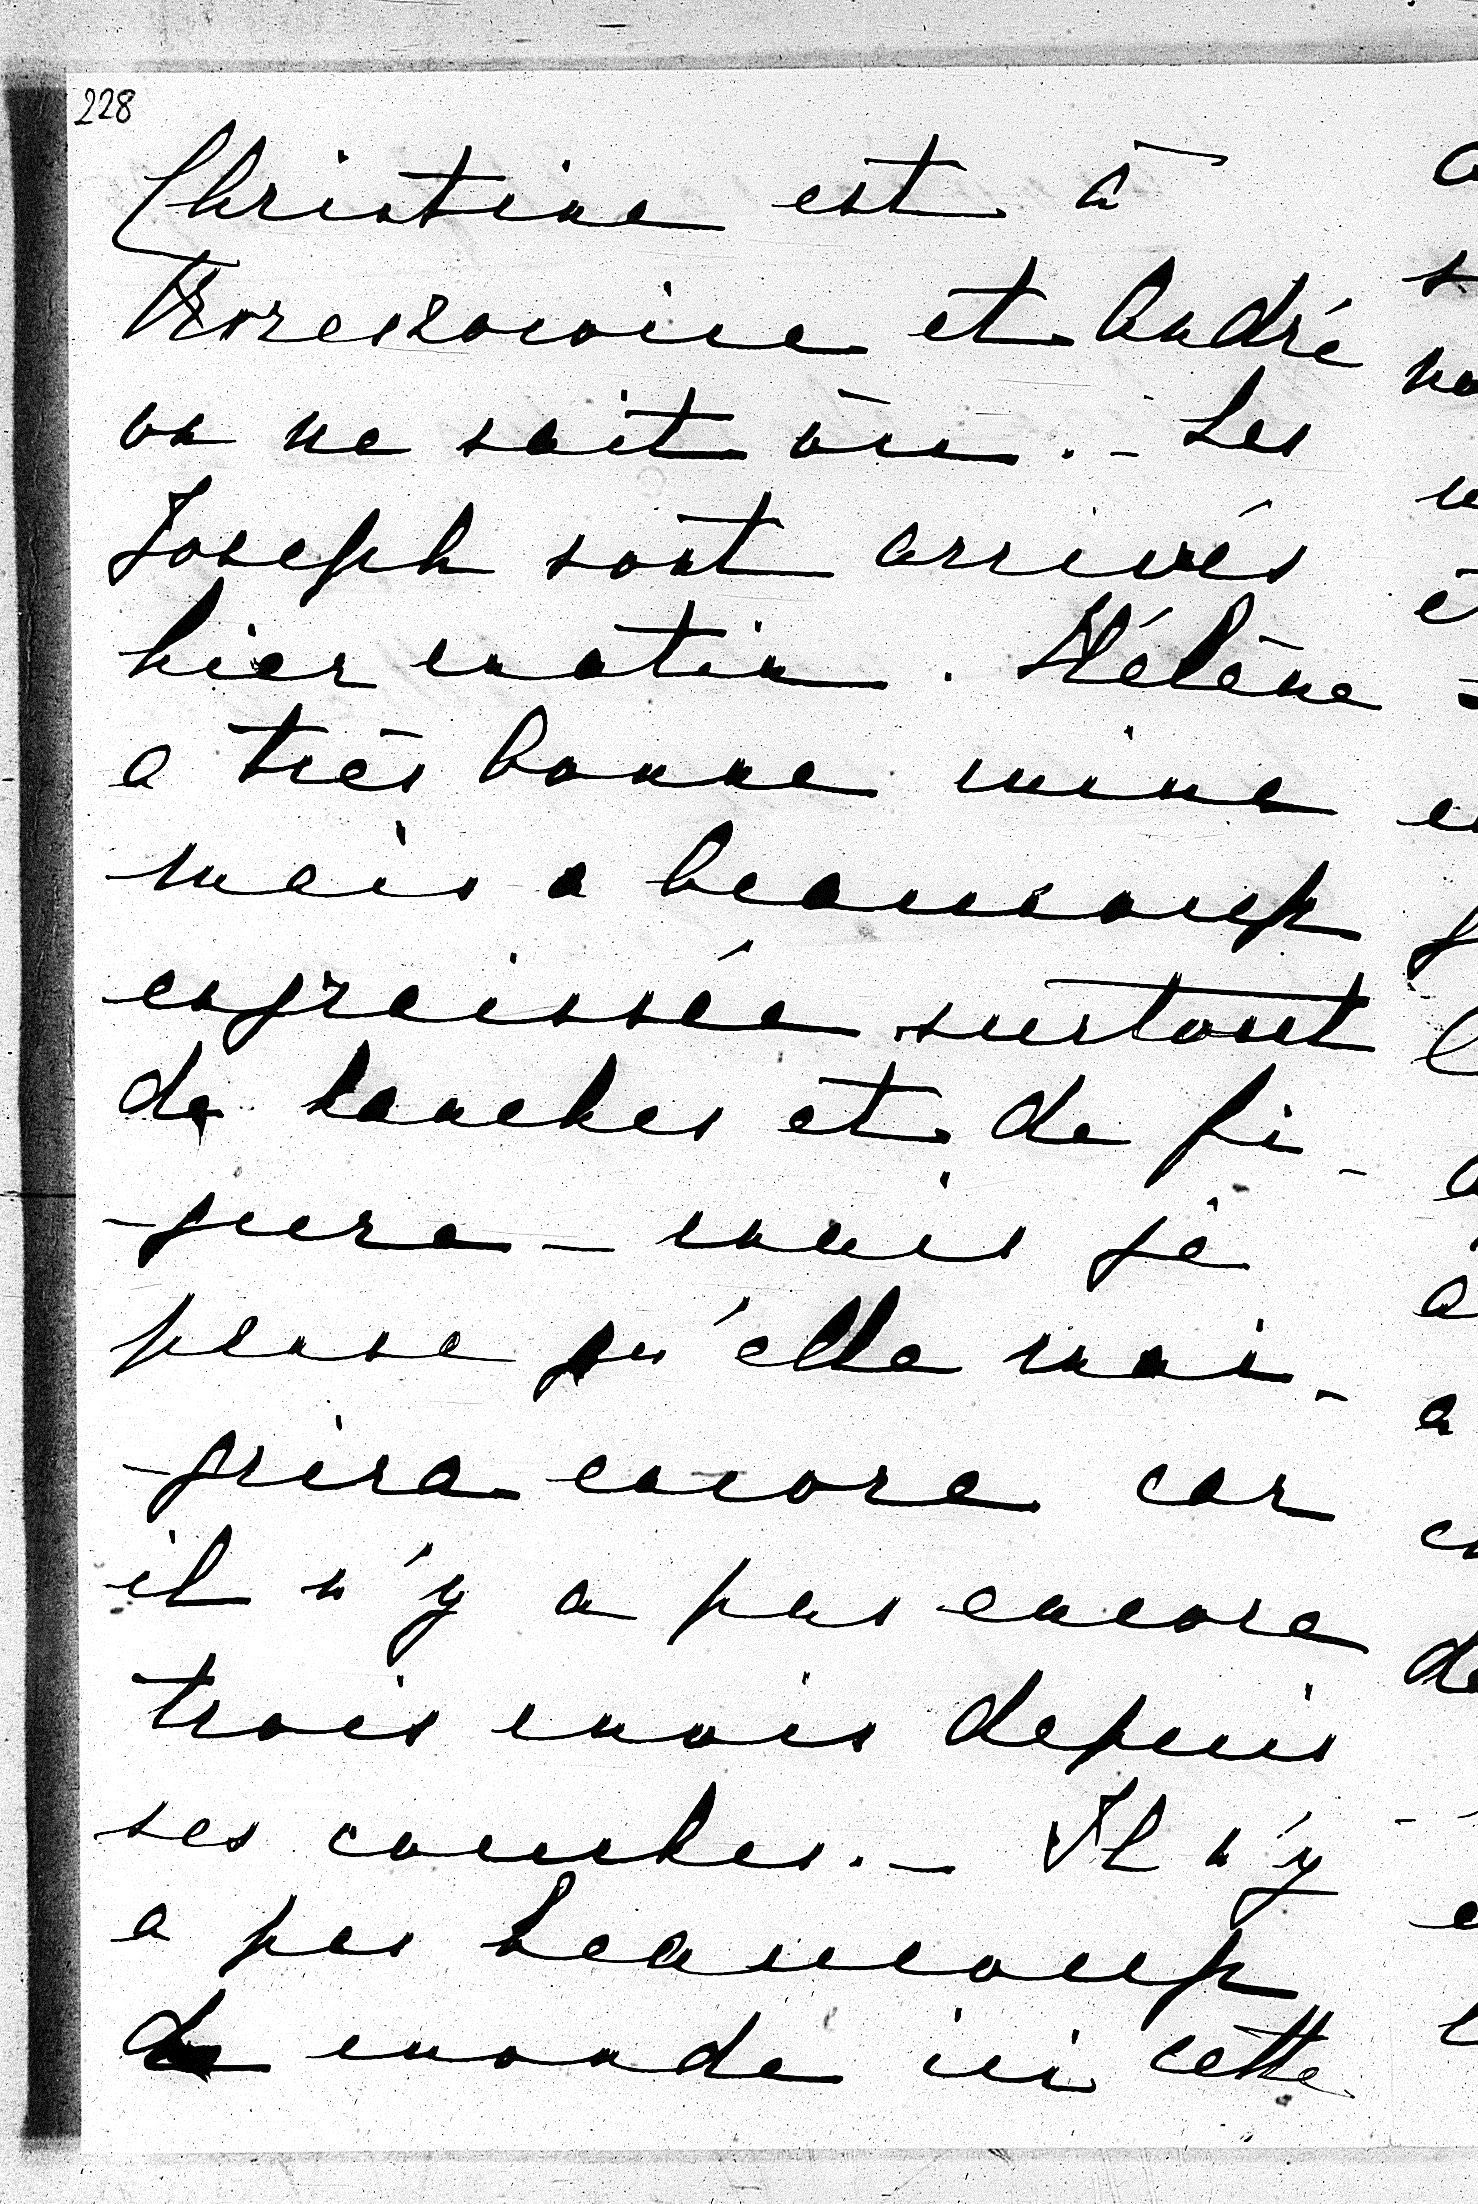 228
Christine est à
Krzeszowice et André
on ne sait où. - Les
Joseph sont arrivés
hier matin. Hélène
a très bonne mine
mais a beaucoup
engraissée surtout
de hanches et de fi-
-gure - mais je
pense qu'elle mai-
-grira encore car
il n'y a pas encore
trois mois depuis
ses couches. - Il n'y
a pas beaucoup
de monde ici cette